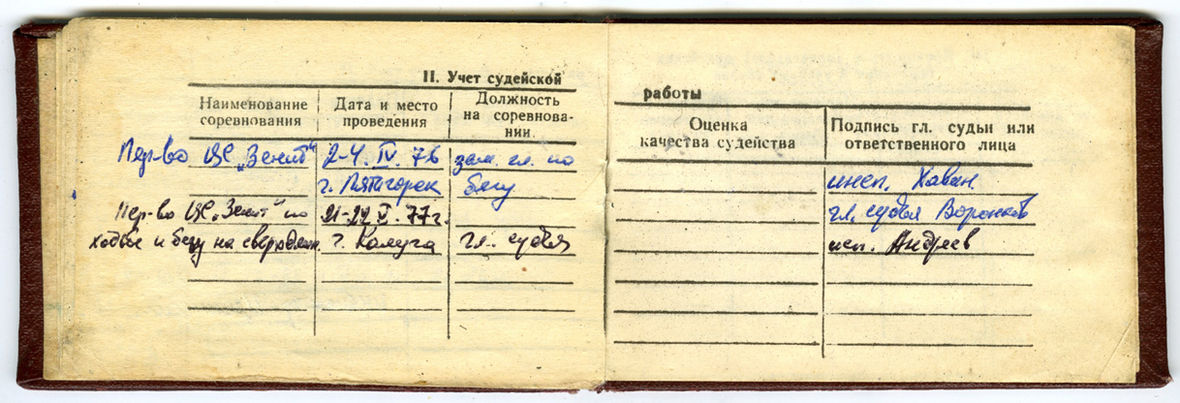 II. Учет судейской
работы
Наименование соревнования
Дата и место проведения
Должность на соревнова-нии
Оценка качества судейства
Подпись гл. судьи или ответственного лица
Пер-во ЦС „Зенит“ 2-4. IV. 76 зам. гл. по
г. Пятигорск бегу
инсп. Хаван
Пер-во ЦС „Зенит“ по 21-22 V. 77 г.
гл. судья Воронков
ходьбе и бегу на г. Калуга гл. судья
исп. Андреев